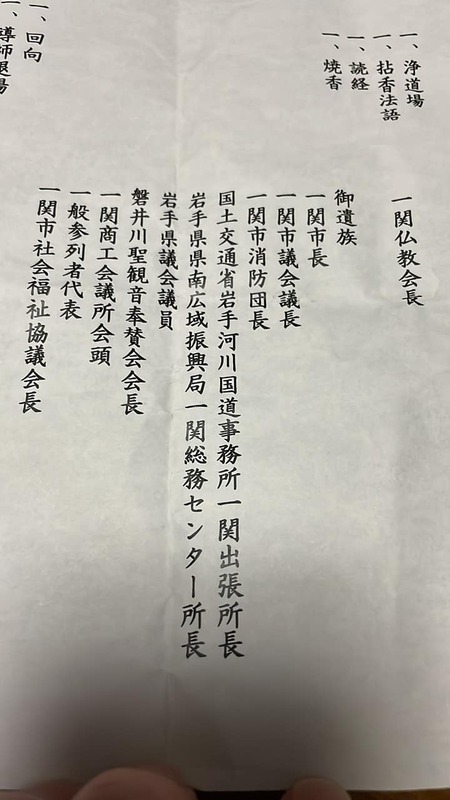 一、浄道場
一、拈香法語
一、読経
一、焼香
一関仏教会長
御遺族
一関市長
一関市議会議長
一関市消防団長
国土交通省岩手河川国道事務所一関出張所長
岩手県県南広域振興局一関総務センター所長
岩手県議会議員
磐井川聖観音奉賛会会長
一関商工会議所会頭
一般参列者代表
一関市社会福祉協議会長
一、回向
一、導師退場